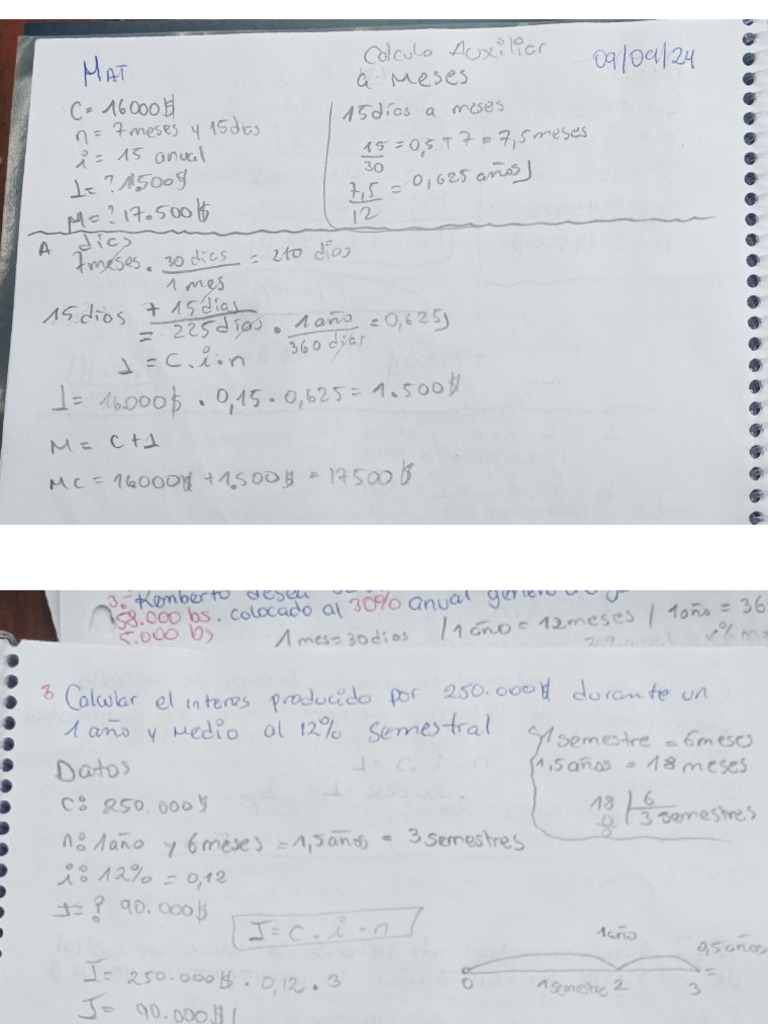 MAT
Calculo Auxiliar
09/09/24
a meses
C= 16000$
n= 7 meses y 15 dias
i= 15 anual
I= ? 1500$
M= ? 17.500$
15 dias a meses
15/30 = 0,5 + 7 = 7,5 meses
7,5/12 = 0,625 años
A dias
7 meses . 30 dias / 1 mes = 210 dias
15 dias + 15 dias
= 225 dias . 1 año / 360 dias = 0,625
I = C . i . n
I = 16000$ . 0,15 . 0,625 = 1.500$
M = C + I
MC = 16000$ + 1.500$ = 17500$
3. Romberto desea
58.000 bs. colocado al 30% anual
5.000 bs
1 mes = 30 dias / 1 año = 12 meses / 1 año = 36
3 Calcular el interes producido por 250.000$ durante un
1 año y medio al 12% semestral
1 semestre = 6 meses
1,5 años = 18 meses
18 | 6
0 3 semestres
Datos
C: 250.000$
n: 1 año y 6 meses = 1,5 años = 3 semestres
i: 12% = 0,12
I=? 90.000$
I = C . i . n
I= 250.000$ . 0,12 . 3
I= 90.000$
1 año
0,5 años
0 1 semestre 2 3 =